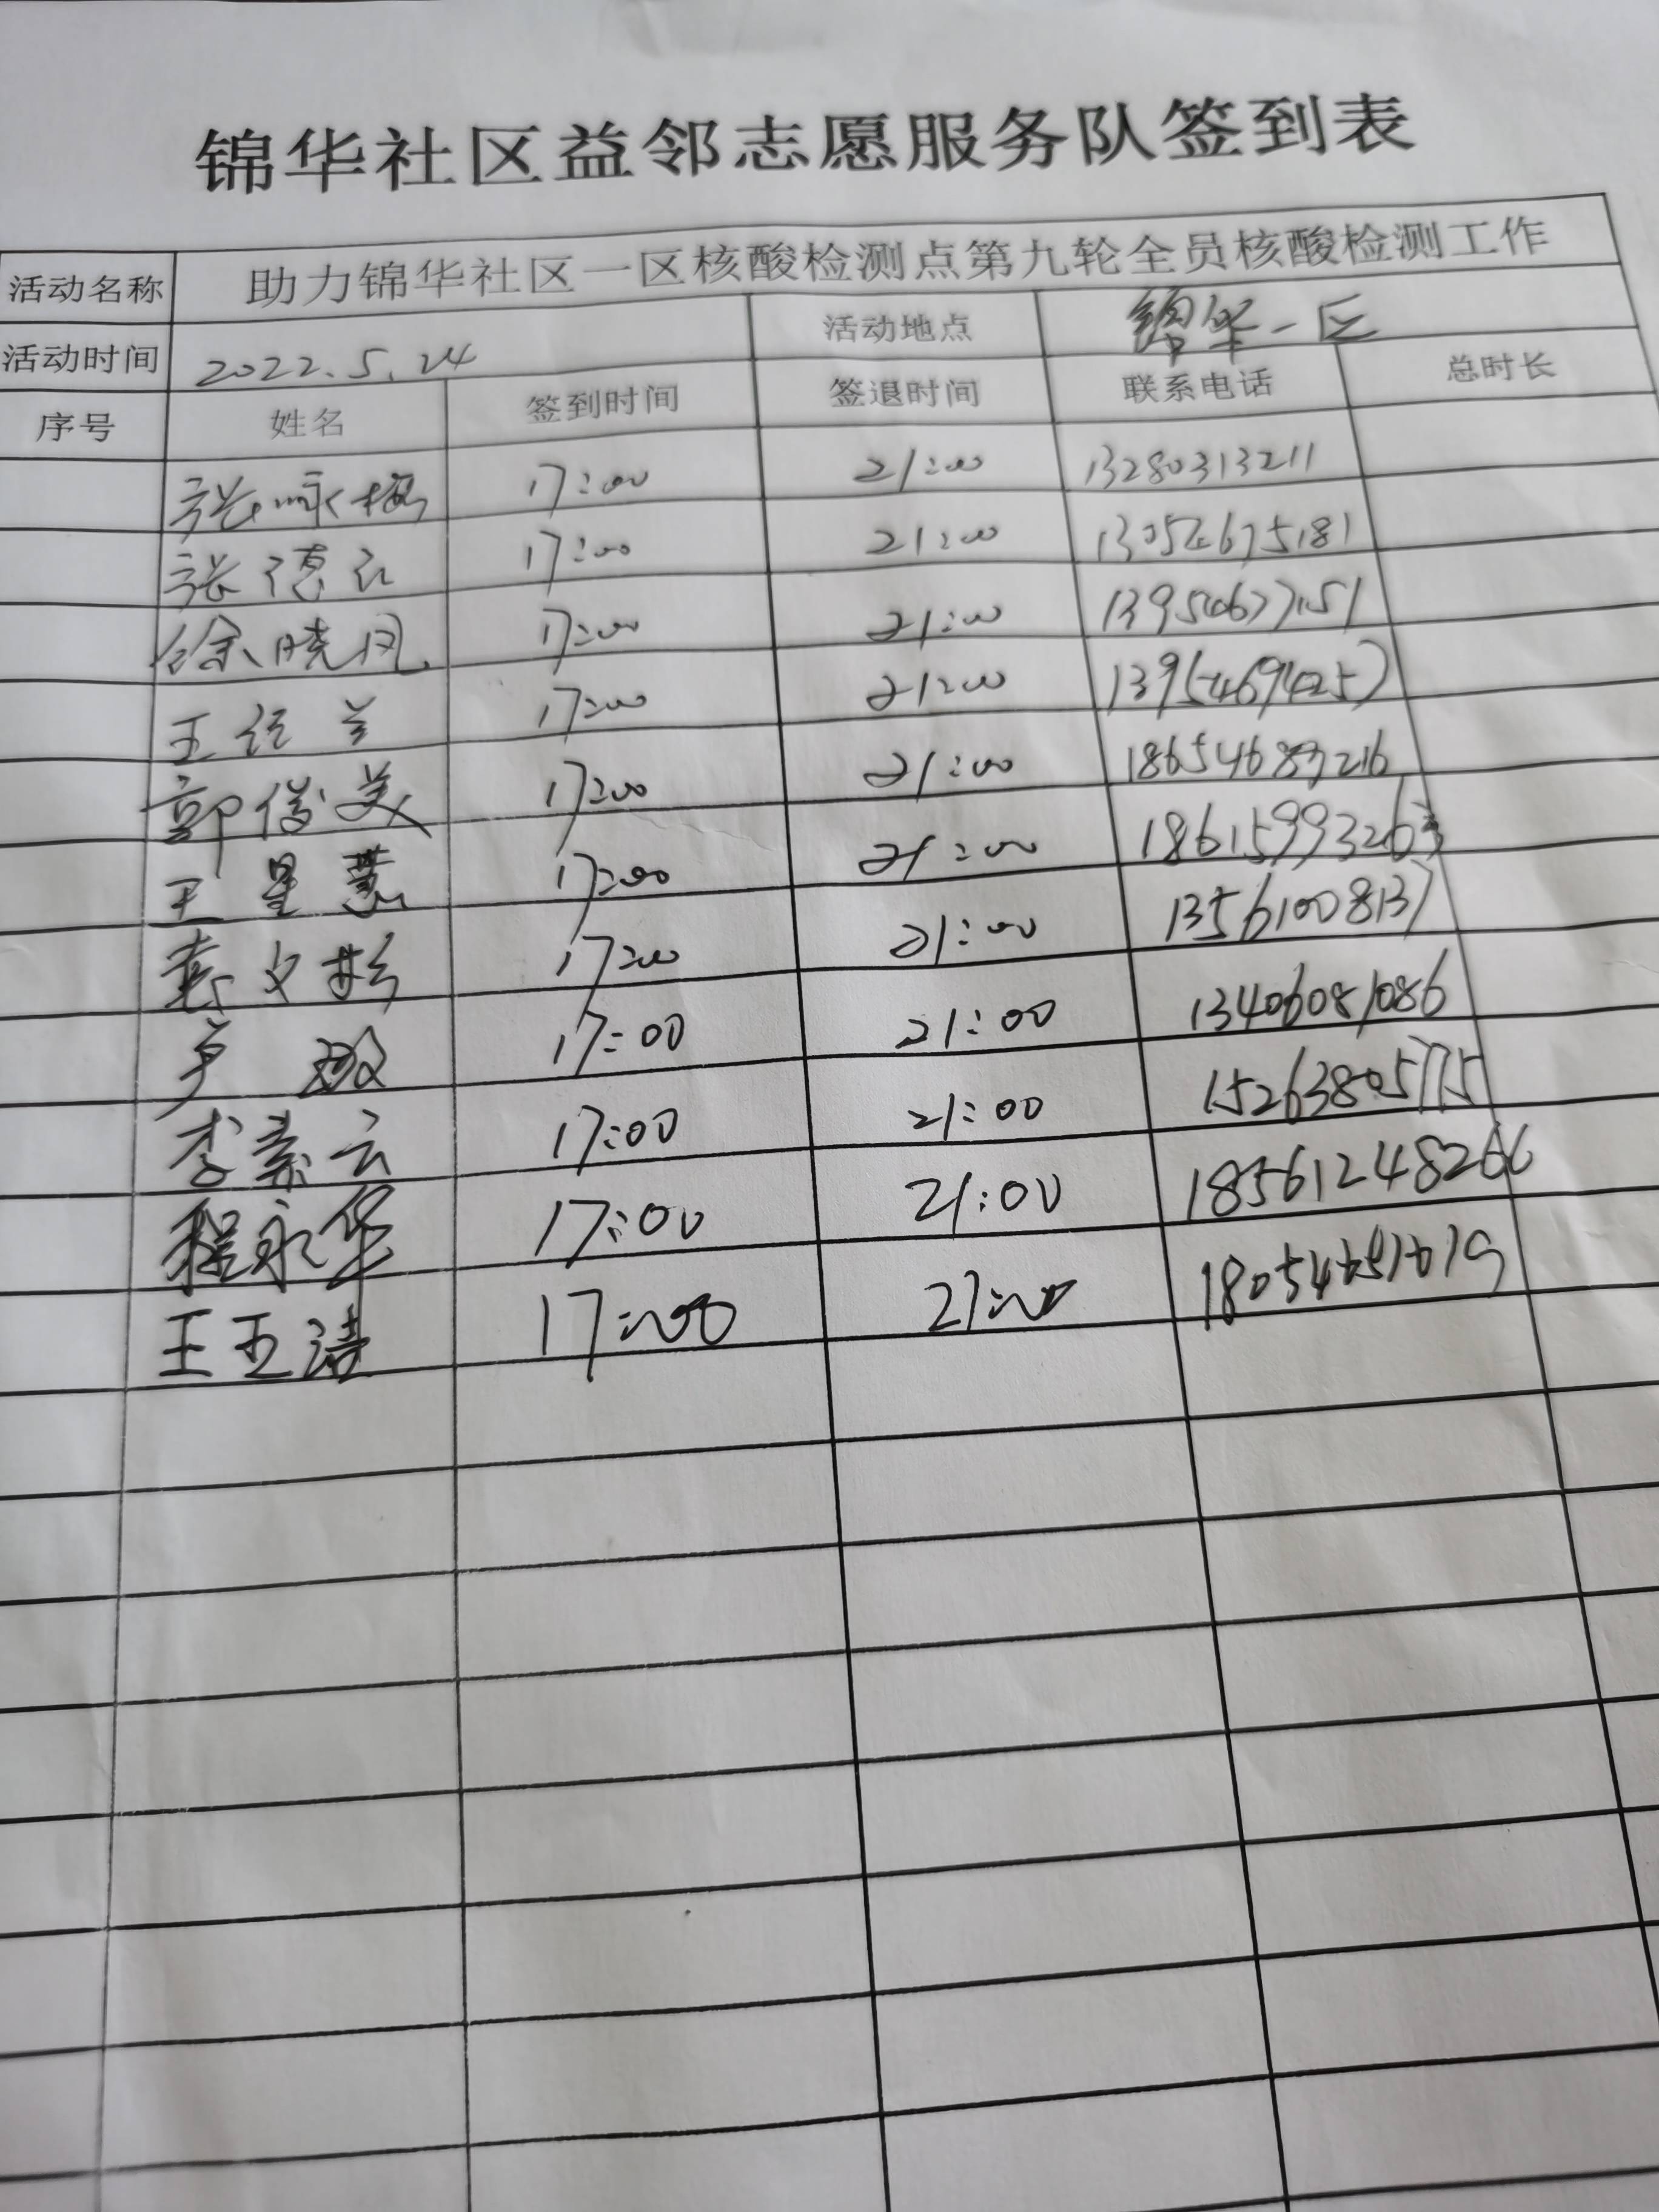 锦华社区益邻志愿服务队签到表
活动名称 助力锦华社区一区核酸检测点第九轮全员核酸检测工作
活动时间 2022.5.24 活动地点 锦华一区
序号 姓名 签到时间 签退时间 联系电话 总时长
张咏梅 17:00 21:00 13280313211
张德 17:00 21:00 13054675181
徐晓凤 17:00 21:00
王 兰 17:00 21:00 13954694257
郭俊美 17:00 21:00
王星慧 17:00 21:00
袁文杉 17:00 21:00 13561008137
17:00 21:00 13406081086
李素云 17:00 21:00 15263805775
程永华 17:00 21:00 18561248266
王玉洁 17:00 21:00